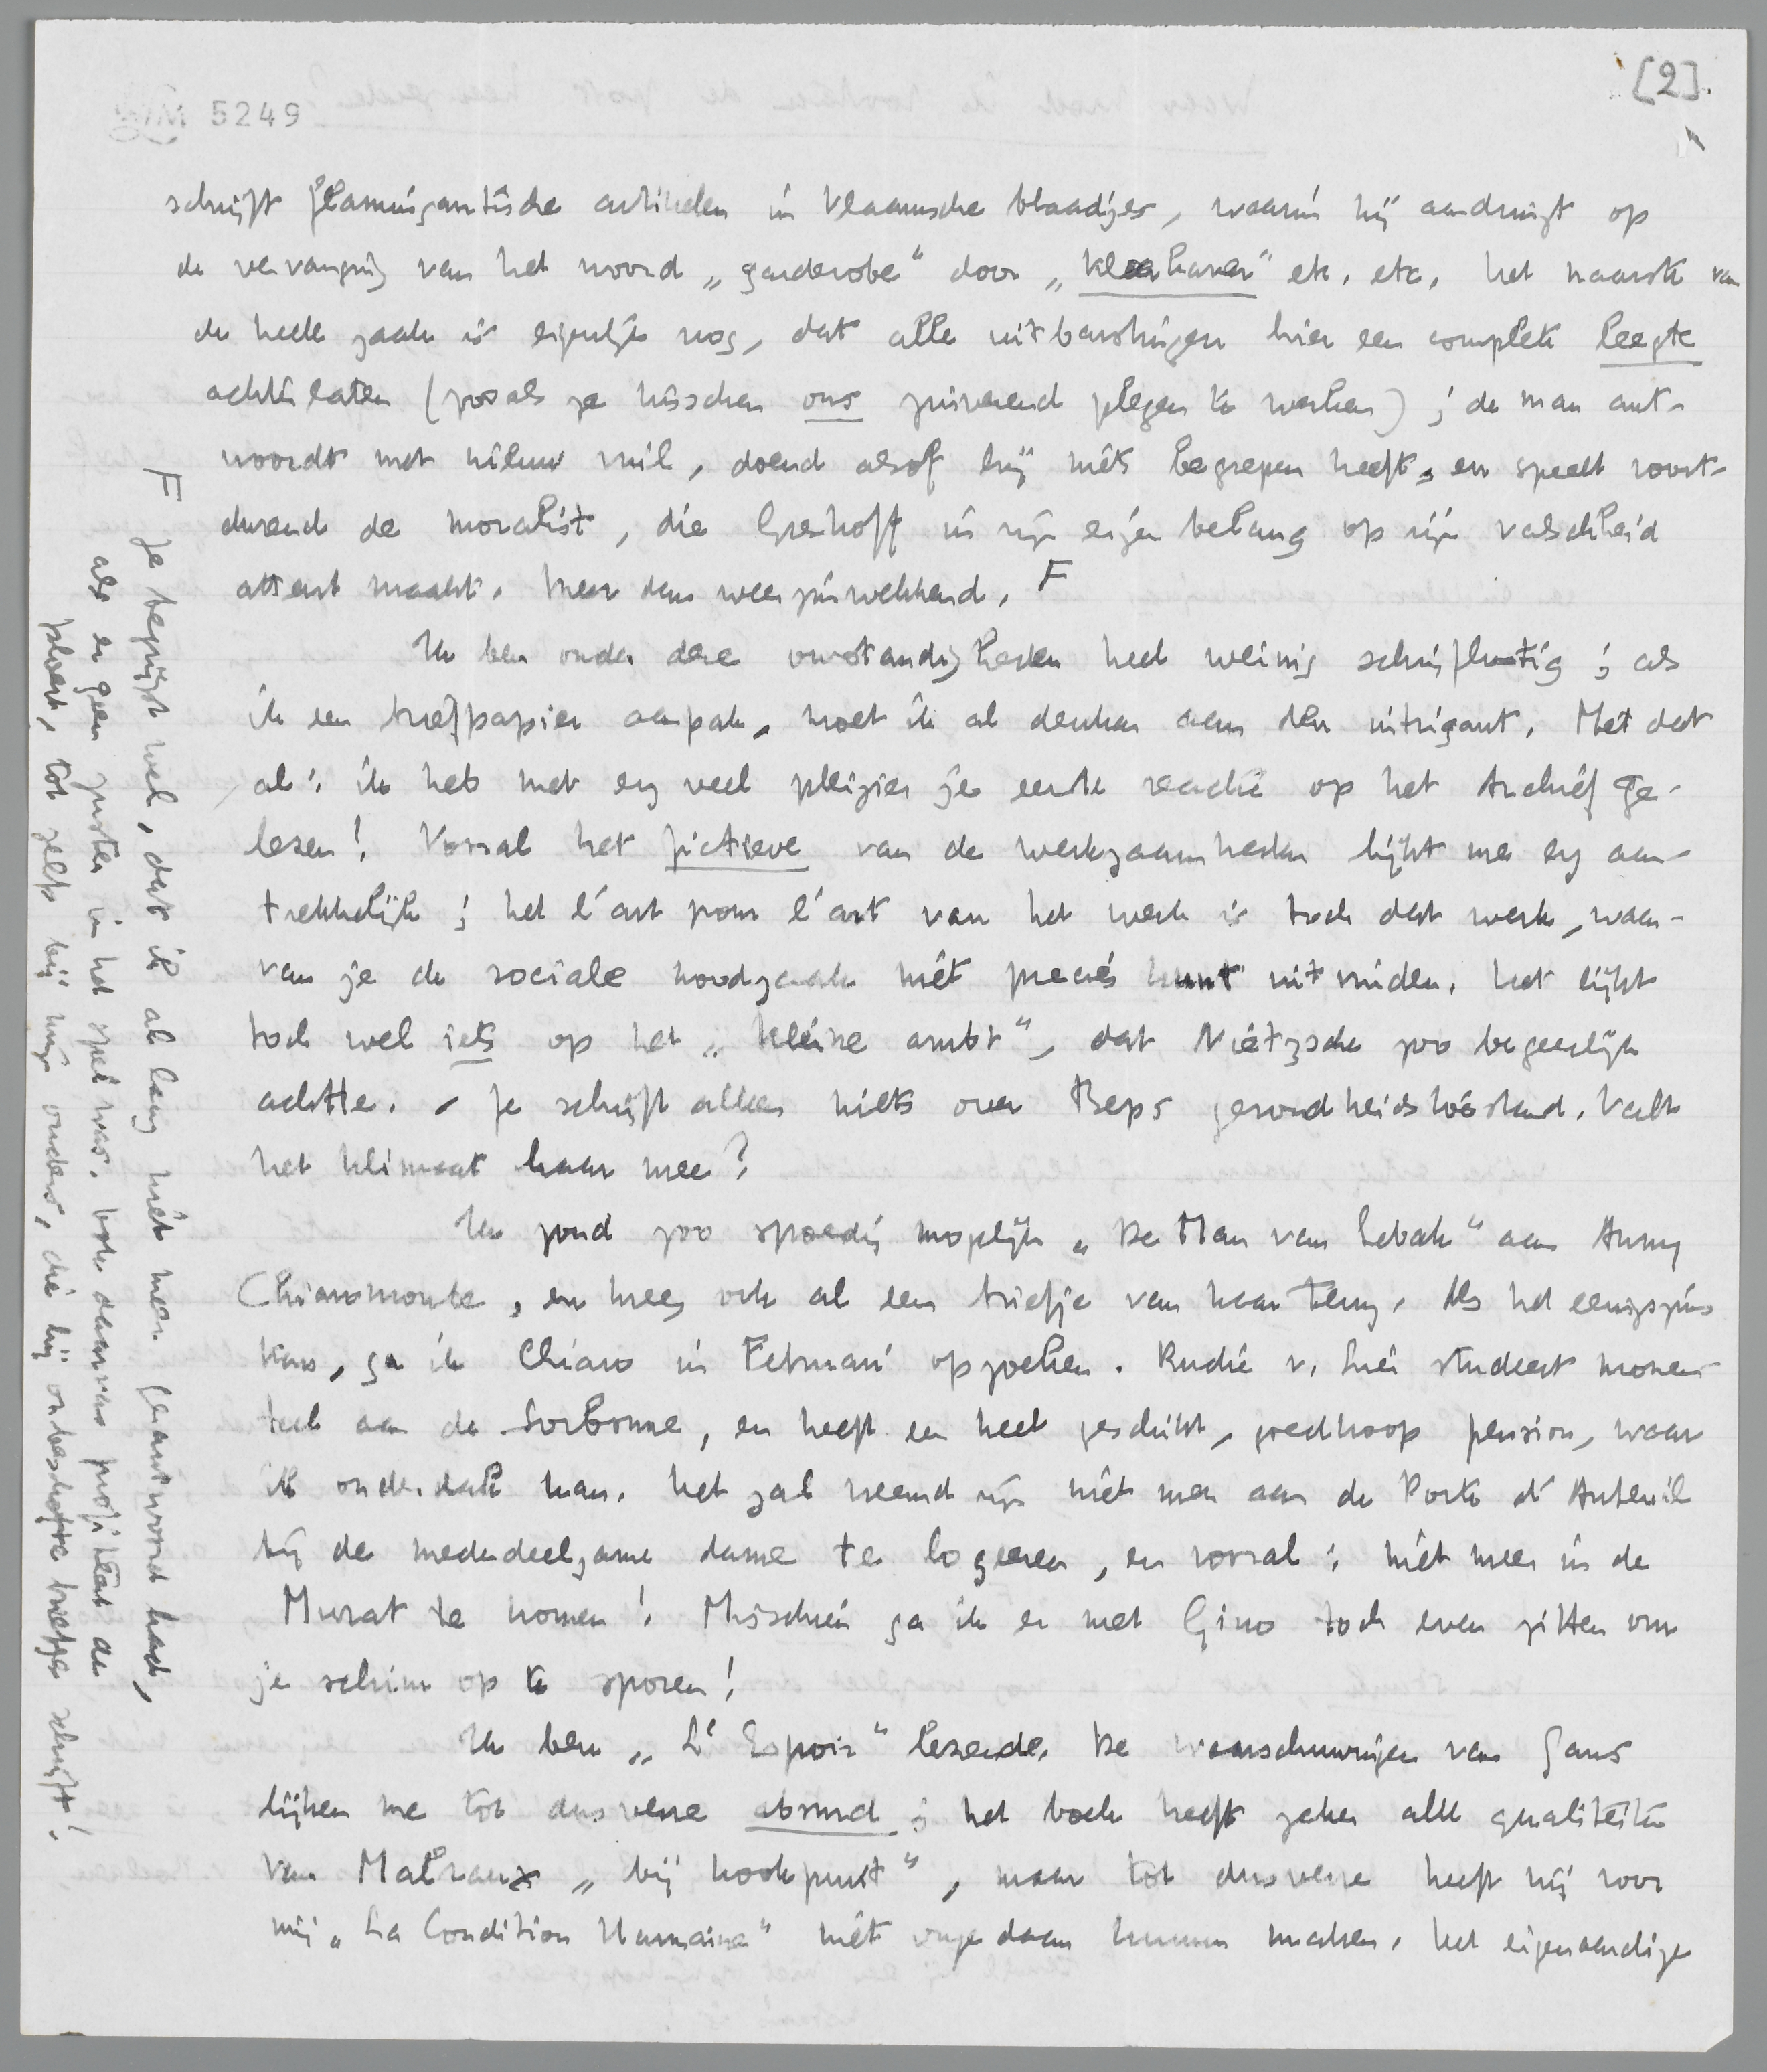 [2].
5249
schrijft flamingantische artikelen in Vlaamsche blaadjes, waarin hij aandringt op
de vervanging van het woord „garderobe" door „kleerkamer" etc. etc. Het naarste van
de heele zaak is eigenlijk nog, dat alle uitbarstingen hier een complete leegte
achterlaten (zooals ze tusschen ons zuiverend plegen te werken); de man ant-
woordt met nieuw vuil, doend alsof hij niets begrepen heeft, en speelt voort-
durend de moralist, die Greshoff in zijn eigen belang op zijn valschheid
attent maakt. Meer dan weerzinwekkend. F
Ik ben onder deze omstandigheden heel weinig schrijflustig; als
ik een briefpapier aanpak, moet ik al denken aan den intrigant. Met dat
al: ik heb met erg veel pleizier je eerste reactie op het Archief ge-
lezen! Vooral het fictieve van de werkzaamheden lijkt me erg aan-
trekkelijk; het l'art pour l'art van het werk is toch dat werk, waar-
van je de sociale noodzaak niet precies kunt uitvinden. Het lijkt
toch wel iets op het „kleine ambt", dat Nietzsche zoo begeerlijk
achtte. - Je schrijft alleen niets over Beps gezondheidstoestand. Valt
het klimaat haar mee?
Ik zond zoo spoedig mogelijk „De Man van Lebak" aan Anny
Chiaromonte, en kreeg ook al een briefje van haar terug. Als het eenigszins
kan, ga ik Chiaro in Februari opzoeken. Rudie v. Lier studeert momen-
teel aan de Sorbonne, en heeft een heel geschikt, goedkoop pension, waar
ik onderdak kan. Het zal vreemd zijn niet meer aan de Porte d'Auteuil
bij de mededeelzame dame te logeeren, en vooral: niet meer in de
Murat te komen! Misschien ga ik er met Gino toch even zitten om
je schim op te sporen!
Ik ben „L'Espoir" lezende. De waarschuwingen van Gans
lijken me tot dusverre absurd; het boek heeft zeker alle qualiteiten
van Malraux „bij kookpunt", maar tot dusverre heeft hij voor
mij „La Condition Humaine" niet ongedaan kunnen maken. Het eigenaardige
F Je begrijpt wel, dat ik al lang niet meer geantwoord had,
als er geen zuster in het spel was. Ook daarvan profiteert de
ploert, tot zelfs bij mijn ouders, die hij onbeschofte briefjes schrijft!